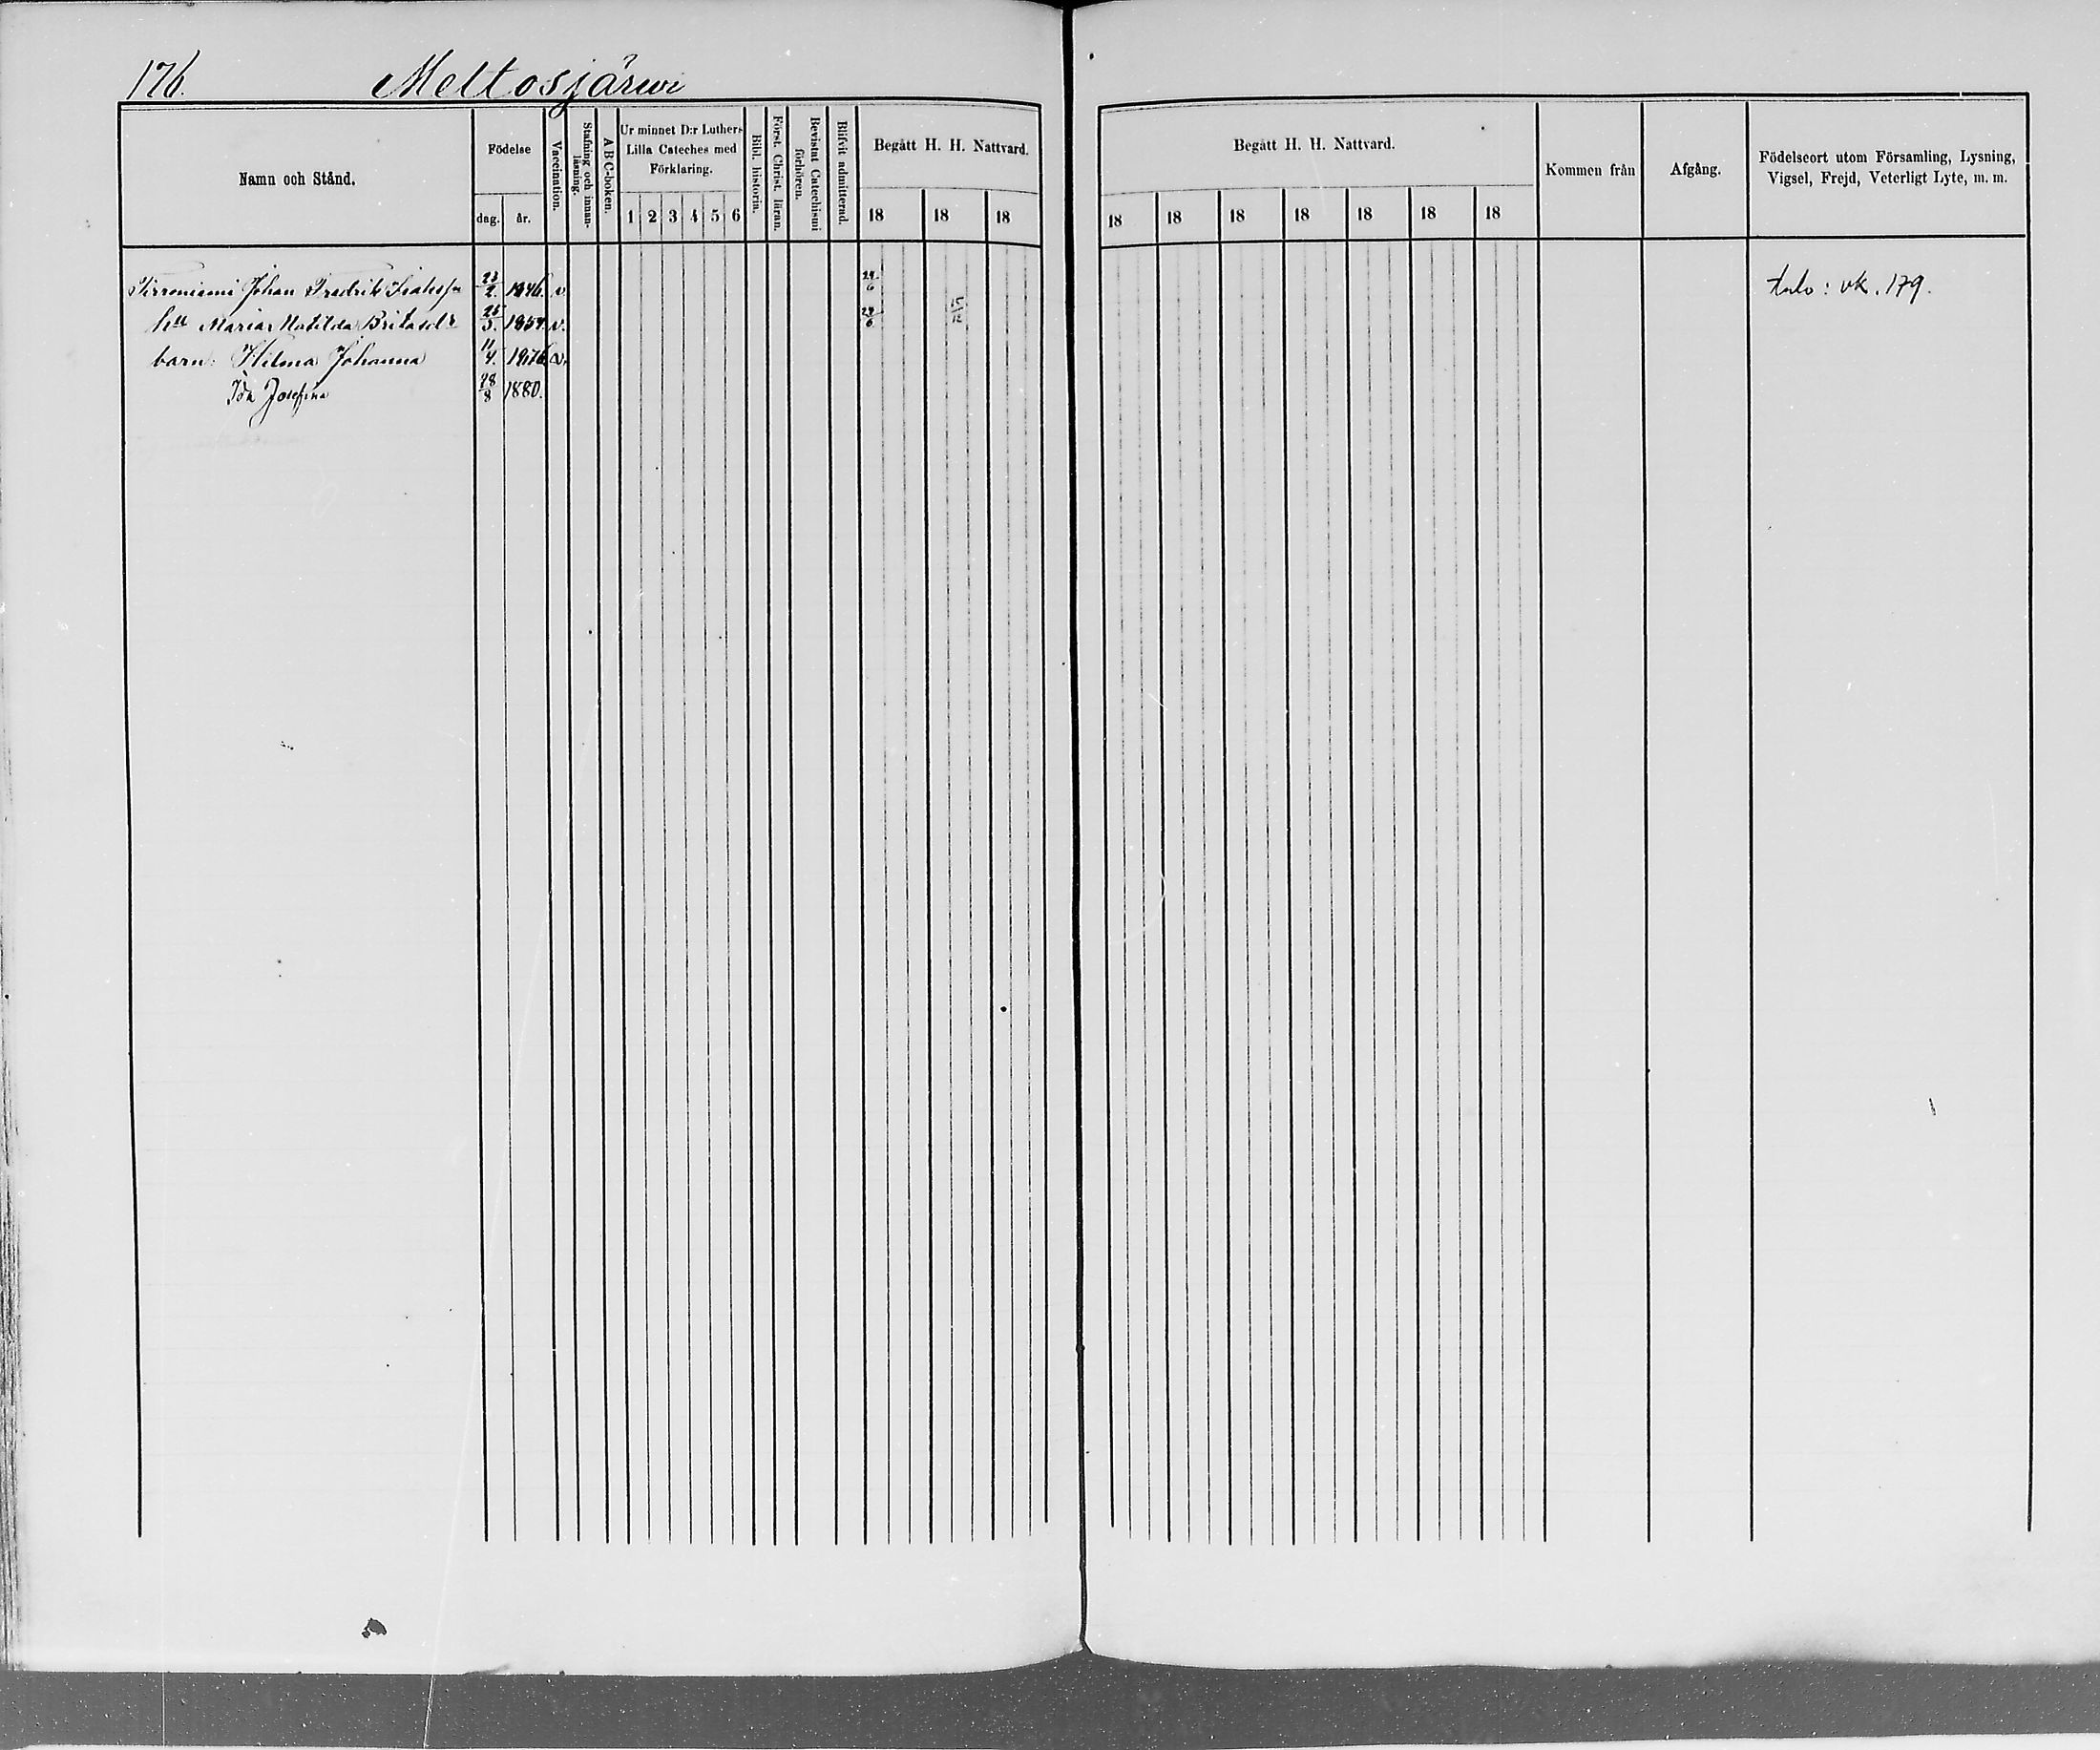 176.
Meltosjärwi
Namn och Stånd.
Födelse
dag.
år.
Vaccination.
Stafning och innan-
läsning.
ABC-boken.
Ur minnet D:r Luthers
Lilla Cateches med
Förklaring.
1 2 3 4 5 6
Bibl. historia.
Först. Christ. läran.
Bevistat Catechismi
förhören.
Blifvit admitterad.
Begått H. H. Nattvard.
18 18 18
Begått H. H. Nattvard.
18 18 18 18 18 18 18
Kommen från
Afgång.
Födelseort utom Församling, Lysning,
Vigsel, Frejd, Veterligt Lyte, m. m.
Johan Fredrik 23/2. 1846. v. 24/6
hu Maria Matilda 5. 1857. v. 24/6 15/12
barn: Hilma Johanna 11/4. 1876 v.
Ida Josefina 28/8 1880.
: vk. 179.